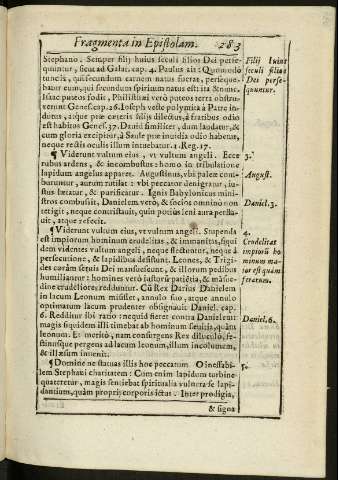 Fragmenta in Epistolam. 283
Stephano. Semper filij huius seculi filios Dei perse-
quuntur, sicut ad Galat. cap. 4. Paulus ait: Quomodo
tunc is, qui secundum carnem natus fuerat, perseque-
batur eum, qui secundum spiritum natus est: ita & nunc.
Isaac puteos fodit, Philistiim verò puteos terra obstru-
xerunt Genes. cap. 26. Ioseph veste polymita à Patre in-
dutus, atque præ cæteris filijs dilectus, à fratribus odio
est habitus Genes. 37. Dauid similiter, dum laudatur, &
cum gloria excipitur, à Saule præ inuidia odio habetur,
neque rectis oculis illum intuebatur. 1. Reg. 17.
¶ Viderunt vultum eius, vt vultum angeli. Ecce
rubus ardens, & incombustus: homo in tribulatione
lapidum angelus apparet. Augustinus, vbi palem com-
buruntur, aurum rutilat: vbi peccator denigratur, iu-
stus lætatur, & purificatur. Ignis Babylonicus mini-
stros combussit, Danielem verò, & socios omnino non
tetigit, neque contristauit, quin potiùs leni aura persla-
uit, atque refecit.
¶ Viderunt vultum eius, vt vultum angeli. Stupenda
est impiorum hominum crudelitas, & immanitas, siqui
dem videntes vultum angeli, neque flectuntur, neque à
persecutione, & lapidibus desistunt. Leones, & Trigi-
des curâm setuis Dei mansuescunt, & illorum pedibus
humiliantur: homines verò iustorū patiētia, & māsue-
dine crudeliores redduntur. Cū Rex Darius Danielem
in lacum Leonum misisset, annulo suo, atque annulo
optimatum lacum prudenter obsignauit Daniel. cap.
6. Redditur ibi ratio: nequid fieret contra Danielem:
magis siquidem illi timebat ab hominum seuitia, quàm
leonum. Et meritò, nam consurgens Rex diluculo, fe-
stinusque pergens ad lacum leonum, illum incolumem,
& illæsum inuenit.
¶ Domine ne statuas illis hoc peccatum. O ineffabi-
lem Stephani charitatem: Cum enim lapidum turbine
quateretur, magis sentiebat spiritualia vulnera se lapi-
dantium, quàm proprij corporis ictus. Inter prodigia,
& signa
Filij huius
seculi filios
Dei perse-
quuntur.
3.
August.
Daniel. 3.
4.
Crudelitas
impiorū ho
minum ma-
ior est quàm
ferarum.
Daniel. 6.
5.